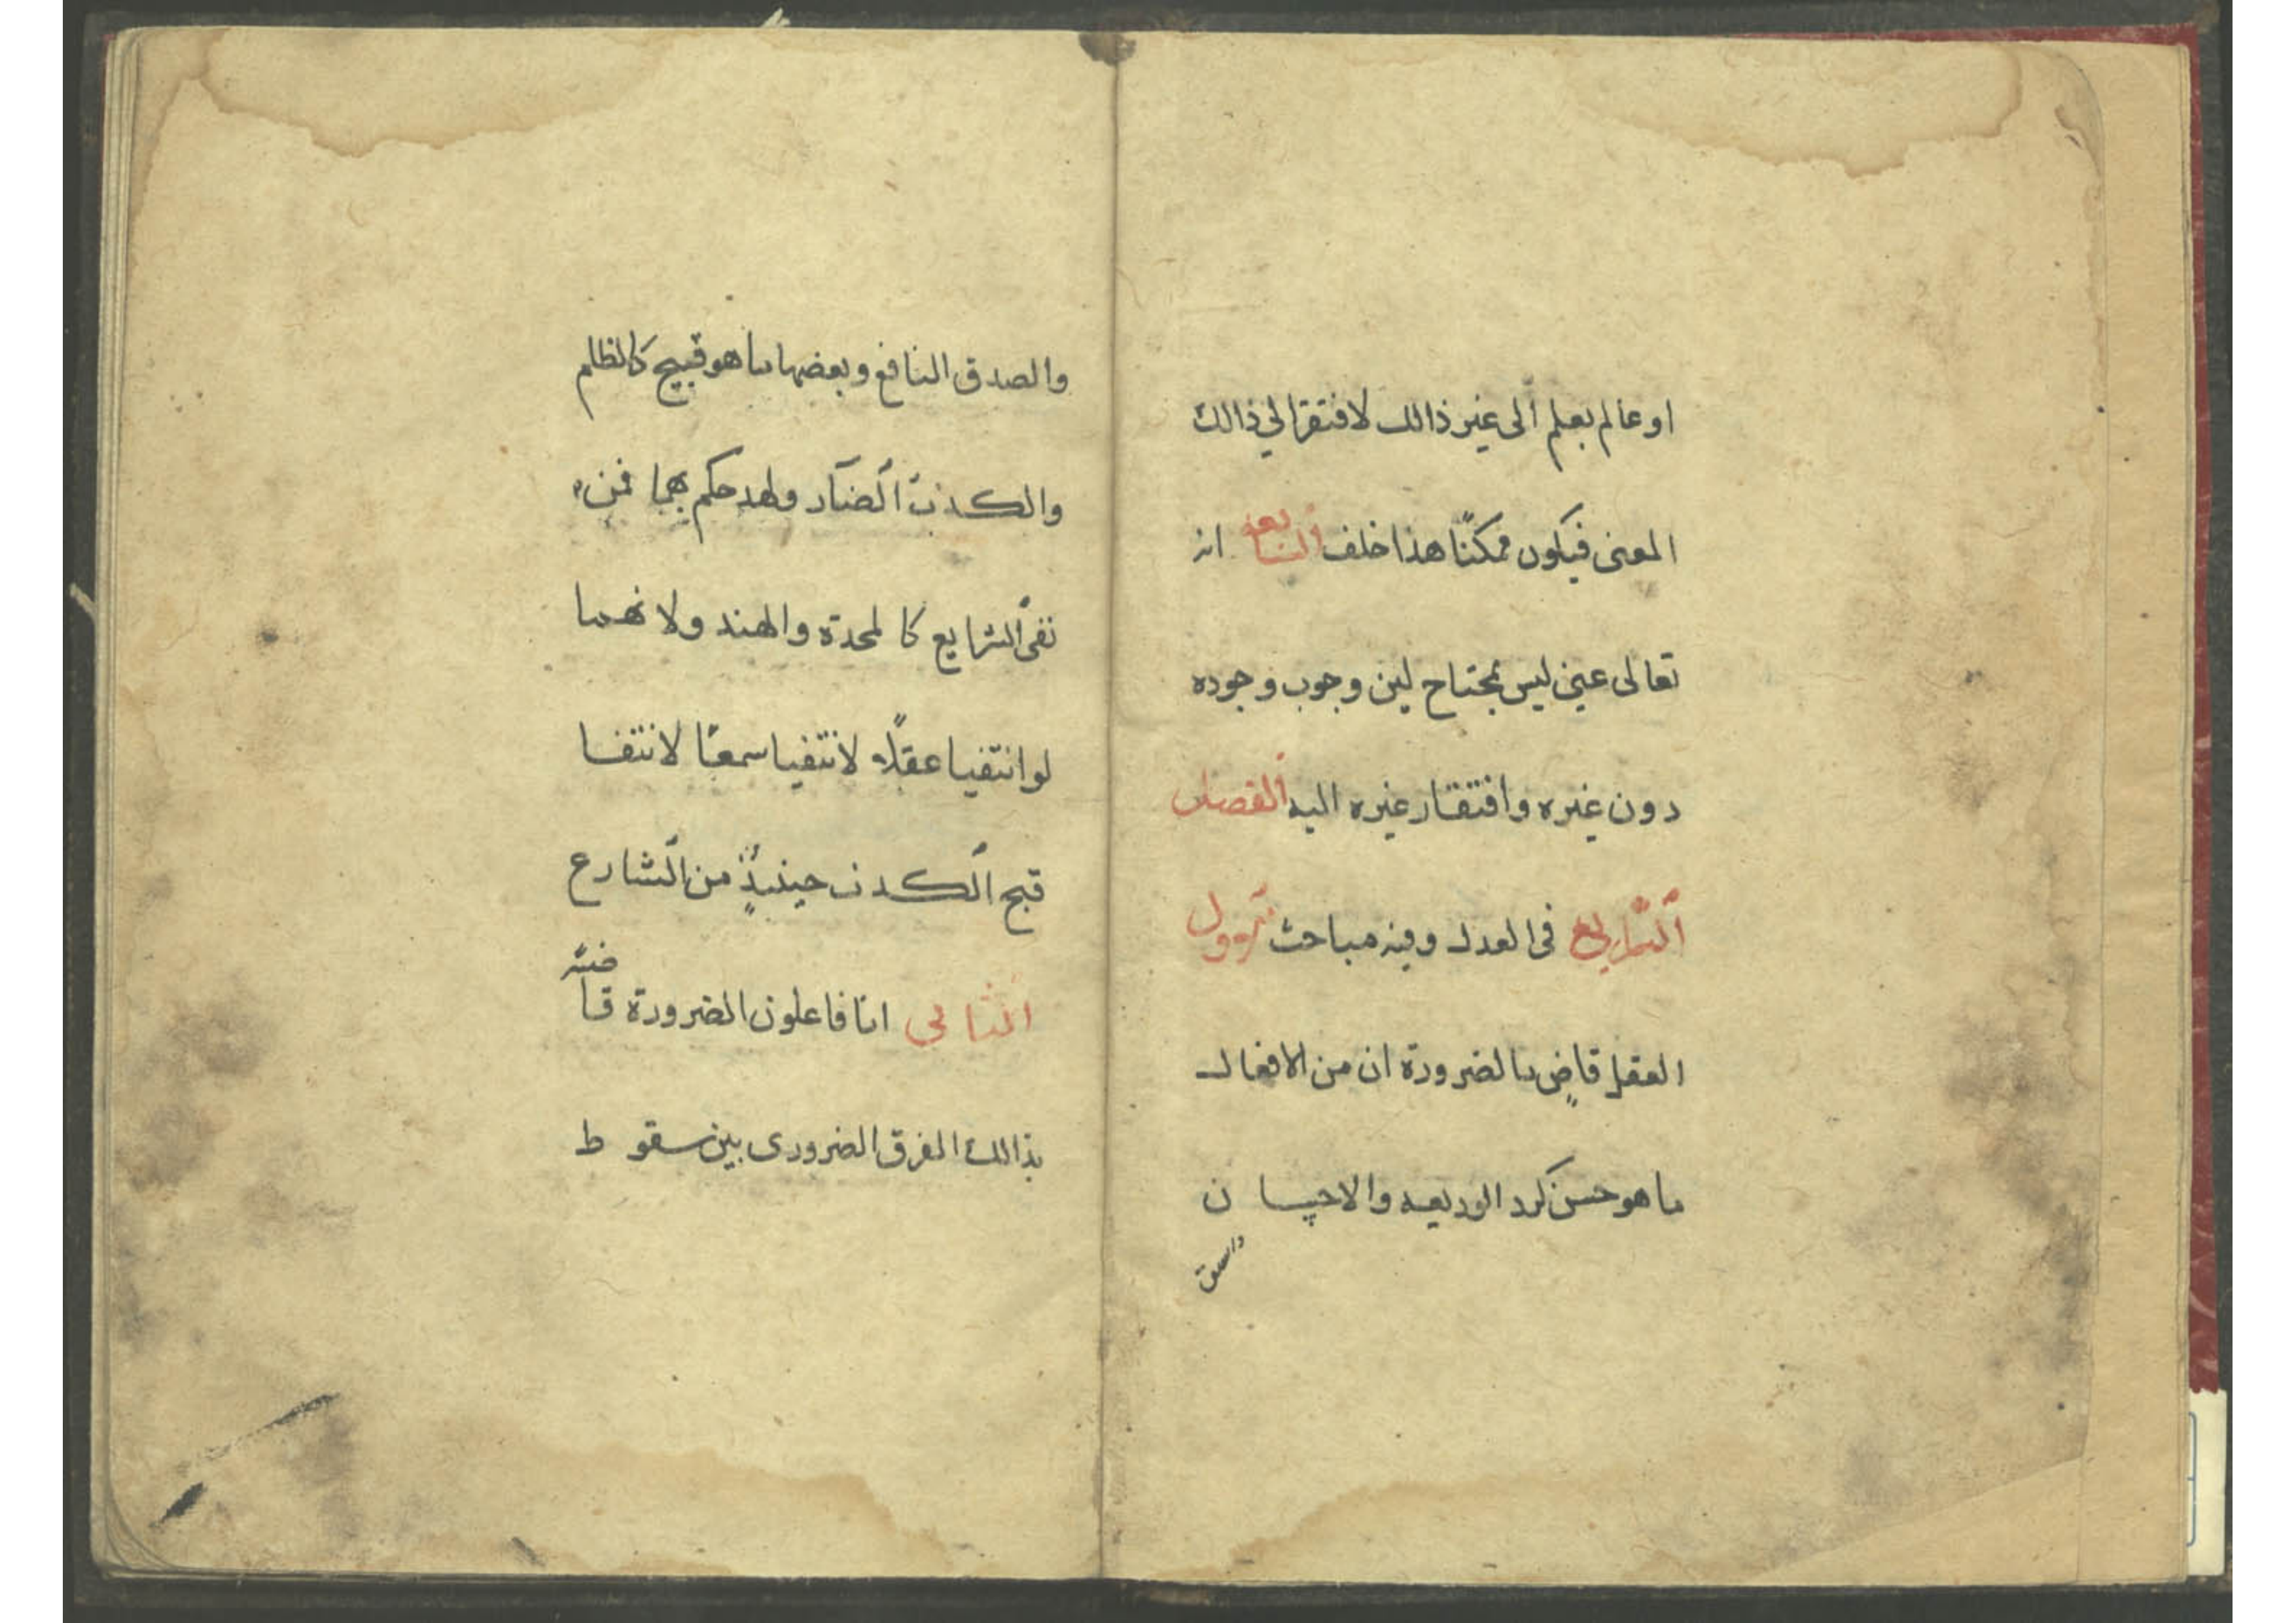 او عالم بعلم الى غير ذالك لافتقر الي ذالك
المعنى فيكون ممكنًا هذا خلف السابعه انه
تعالى غني ليس بمحتاج لين وجوب وجوده
دون غيره وافتقار غيره اليه الفصل
الرابع فى العدل وفيه مباحث الاول
العقل قاضٍ بالضرورة ان من الافعال
ما هو حسن كرد الوديعه والاحسان
والصدق
والصدق النافع وبعضها ما هو قبيح كالظلم
والكذب الضآر ولهد حكم بهما فمن
نفى الشرايع كالمحدة والهند ولانهما
لو انتفيا عقلًا لانتفيا سمعًا لانتفا
قبح الكذب حينئذٍ من الشارع
الثانى انا فاعلون الضرورة قاضيه
بذالك الفرق الضرورى بين سقوط